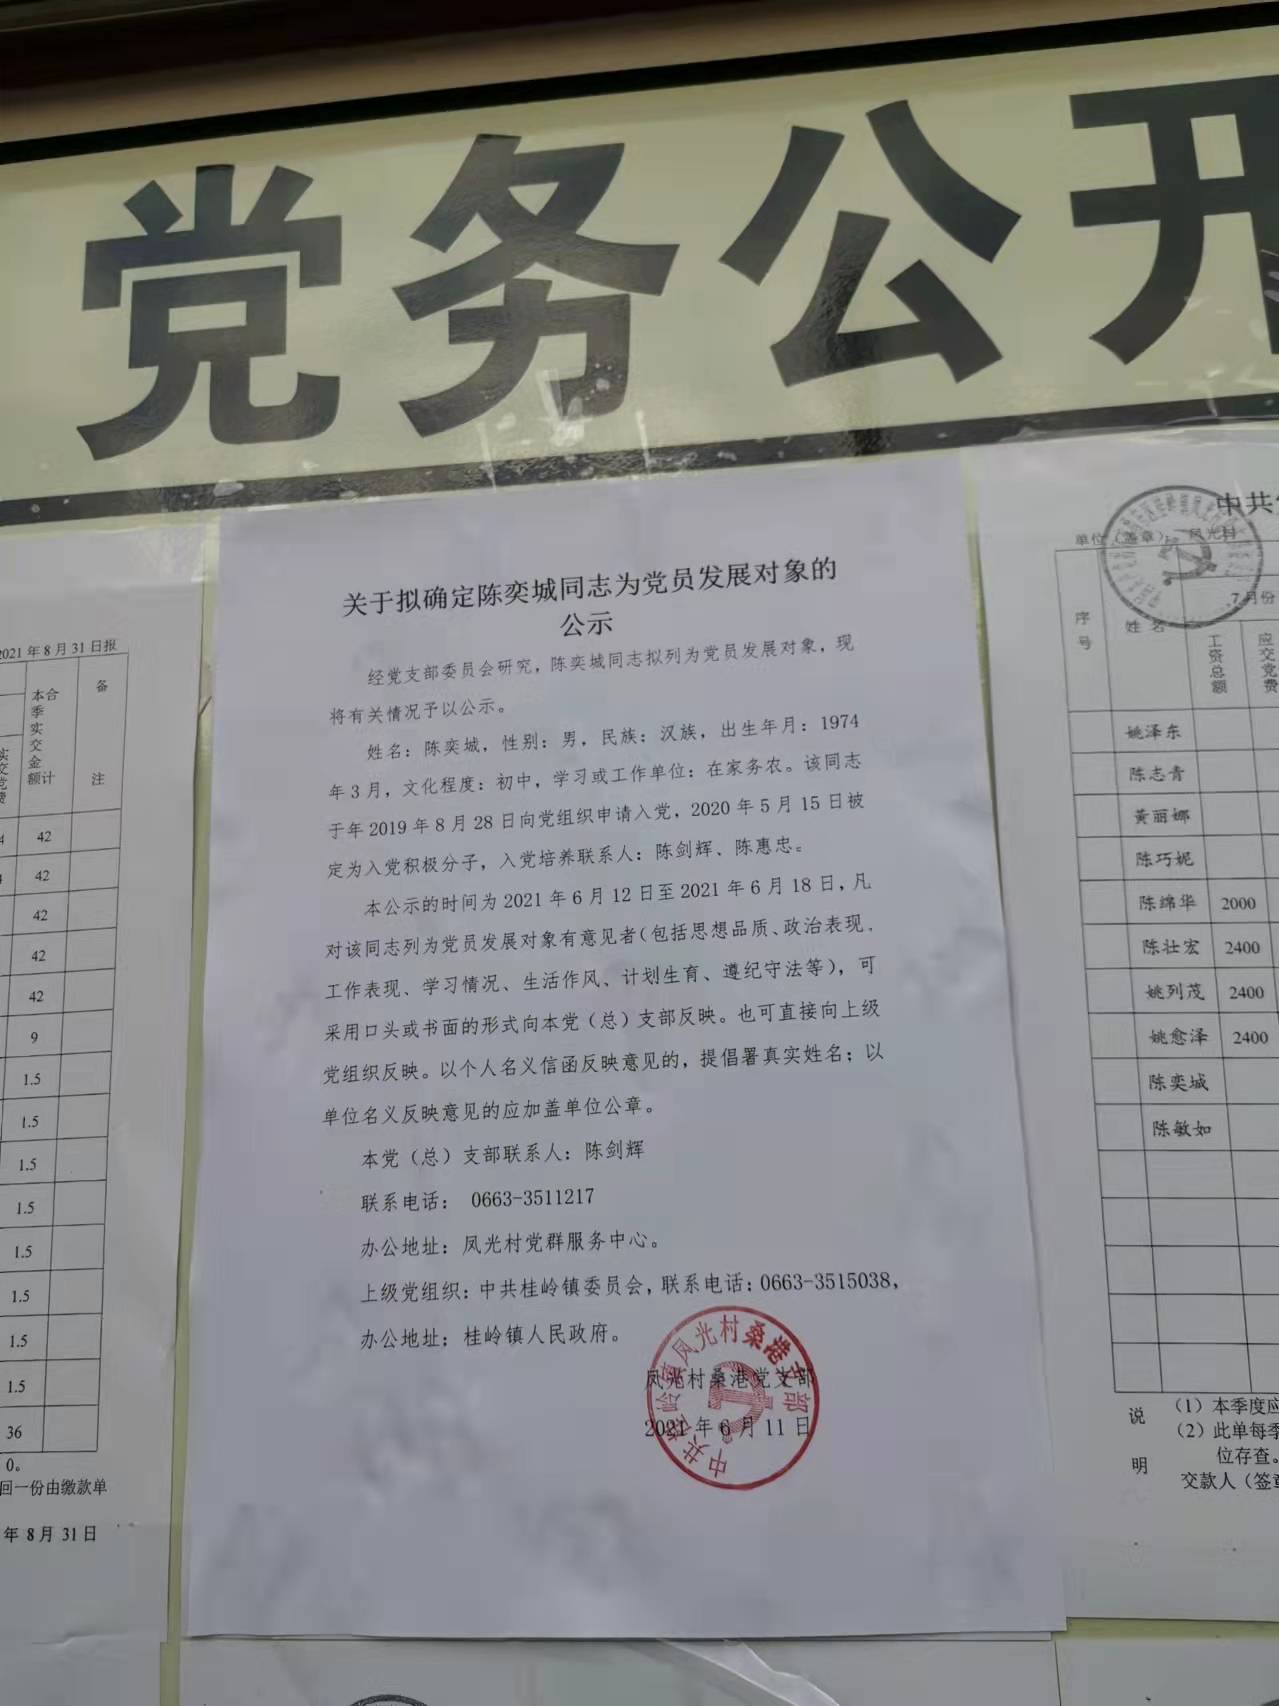 党务公开
关于拟确定陈奕城同志为党员发展对象的
公示
经党支部委员会研究，陈奕城同志拟列为党员发展对象，现
将有关情况予以公示。
姓名：陈奕城，性别：男，民族：汉族，出生年月：1974
年3月，文化程度：初中，学习或工作单位：在家务农。该同志
于年2019年8月28日向党组织申请入党，2020年5月15日被
定为入党积极分子，入党培养联系人：陈剑辉、陈惠忠。
本公示的时间为2021年6月12日至2021年6月18日，凡
对该同志列为党员发展对象有意见者（包括思想品质、政治表现、
工作表现、学习情况、生活作风、计划生育、遵纪守法等），可
采用口头或书面的形式向本党（总）支部反映。也可直接向上级
党组织反映。以个人名义信函反映意见的，提倡署真实姓名；以
单位名义反映意见的应加盖单位公章。
本党（总）支部联系人：陈剑辉
联系电话： 0663-3511217
办公地址：凤光村党群服务中心。
上级党组织：中共桂岭镇委员会，联系电话：0663-3515038，
办公地址；桂岭镇人民政府。
凤光村桑港党支部
2021年6月11日
中共桂岭镇凤光村桑港支部
2021年8月31日报
本季实交金额
合计
备注
实交党费
42
42
42
42
42
9
1.5
1.5
1.5
1.5
1.5
1.5
1.5
1.5
36
0。
回一份由缴款单
年8月31日
中共
单位（盖章）：凤光村
序号
姓名
7月份
工资总额
应交党费
姚泽东
陈志青
黄丽娜
陈巧妮
陈绵华 2000
陈壮宏 2400
姚列茂 2400
姚愈泽 2400
陈奕城
陈敏如
说明
（1）本季度应
（2）此单每季
位存查。
交款人（签章